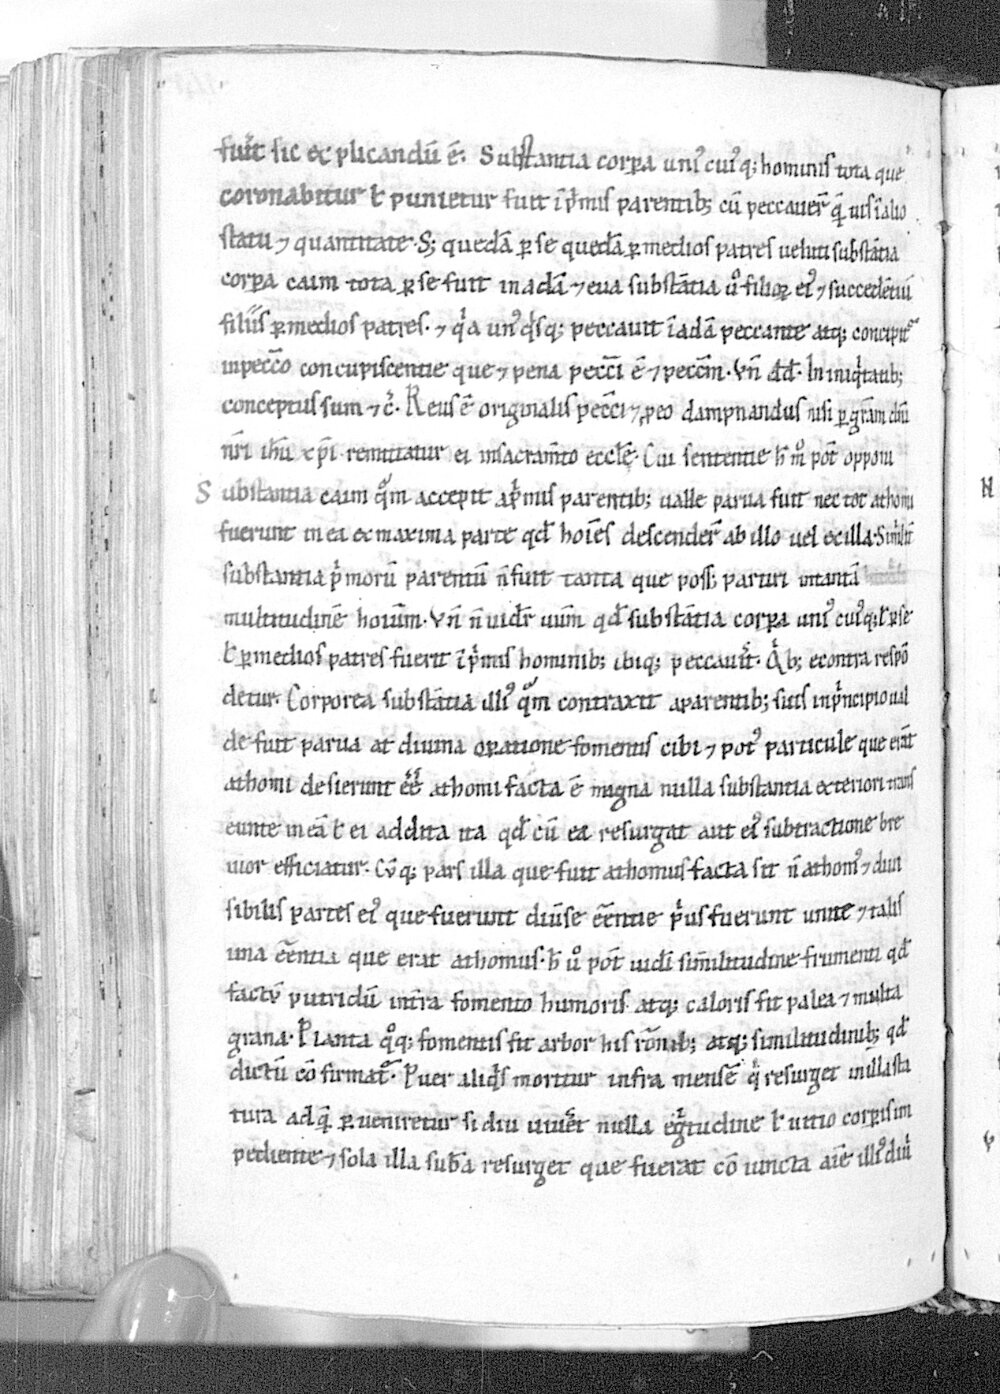 fuer̅t sic explicandū ē. Substantia corpea uniꝰ cuiꝰq; hominis tota que
coronabitur ł punietur fuit ī p̍mis parentib; cū peccauer̄ q̄ uis ī alio
statu ⁊ quantitate. S; quedā ꝑ se quedā ꝑ medios patres ueluti substātia
corpea caim tota ꝑ se fuit in adā ⁊ eua substātia ů filioꝝ eiꝰ ⁊ succedētiū
filiis ꝑ medios patres. ⁊ q̍a unꝰ q̍sq; peccauit ī adā peccante atq; concipit᷑
in pecc̄o concupiscentie que ⁊ pena pecc̄i ē ⁊ pecc̄m. Vn̄ dd̄. In iniq̍tatib;
conceptus sum ⁊ c̄. Reus ē originalis pecc̄i ⁊ ꝓ eo dampnandus nisi ꝑ gr̄am dn̄i
nr̄i ih̄u xp̄i remittatur ei in sacram̄to eccłe. Cui sententie h̄ m̊ pōt opponi
Substantia caim q̊m accepit a p̍mis parentib; ualde parua fuit nec tot athomi
fuerunt in ea ex maxima parte qd̄ hoīes descender̄ ab illo uel ex illa. Similit̄
substantia p̍morū parentū n̄ fuit tanta que poss; partiri in tantā
multitudinē hoiūm. Vn̄ n̄ uidet̄ uerūm qd̄ substātia corpea uniꝰ cuiꝰq; ł ꝑ se
ł ꝑ medios patres fuerit ī p̍mis hominib; ibiq; peccauer̄t. Q̍b; econtra respō
detur. Corporea substātia illiꝰ q̊m contraxit a parentib; suis in p̍ncipio ual
de fuit parua at diuina oꝑatione fomentis cibi ⁊ potꝰ particule que erāt
athomi desierunt eē athomi facta ē magna nulla substantia exteriori trans
eunte in eā ł ei addita ita qd̄ cū ea resurgat aut eiꝰ subtractione bre
uior efficiatur. Cūq; pars illa que fuit athomus facta sit n̄ athomꝰ ⁊ diui
sibilis partes eiꝰ que fuerunt diuse eēntie p̍us fuerunt unite ⁊ talis
una eēntia que erat athomus. h̄ ů pōt uidi similitudine frumenti qd̄
factū putridū in tr̄a fomento humoris atq; caloris fit palea ⁊ multa
grana. Planta q̊q; fomentis fit arbor his rōnib; atq; similitudinib; qd̄
dictū ē ōfirmat᷑. Puer aliq̍s moritur infra mensē q̍ resurget in illa sta
tura ad q̄ ꝑueniretur si diu uiuer̄t nulla eg̍tudine ł uitio corpis im
pediente ⁊ sola illa sub̄a resurget que fuerat cōiuncta aīe illiꝰ diui